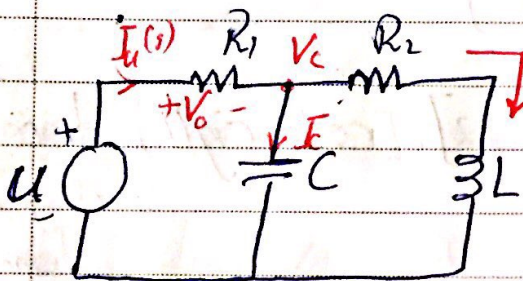 I_u(s) R_1 V_c R_2
+ V_o -
+ I_c
U C L
-